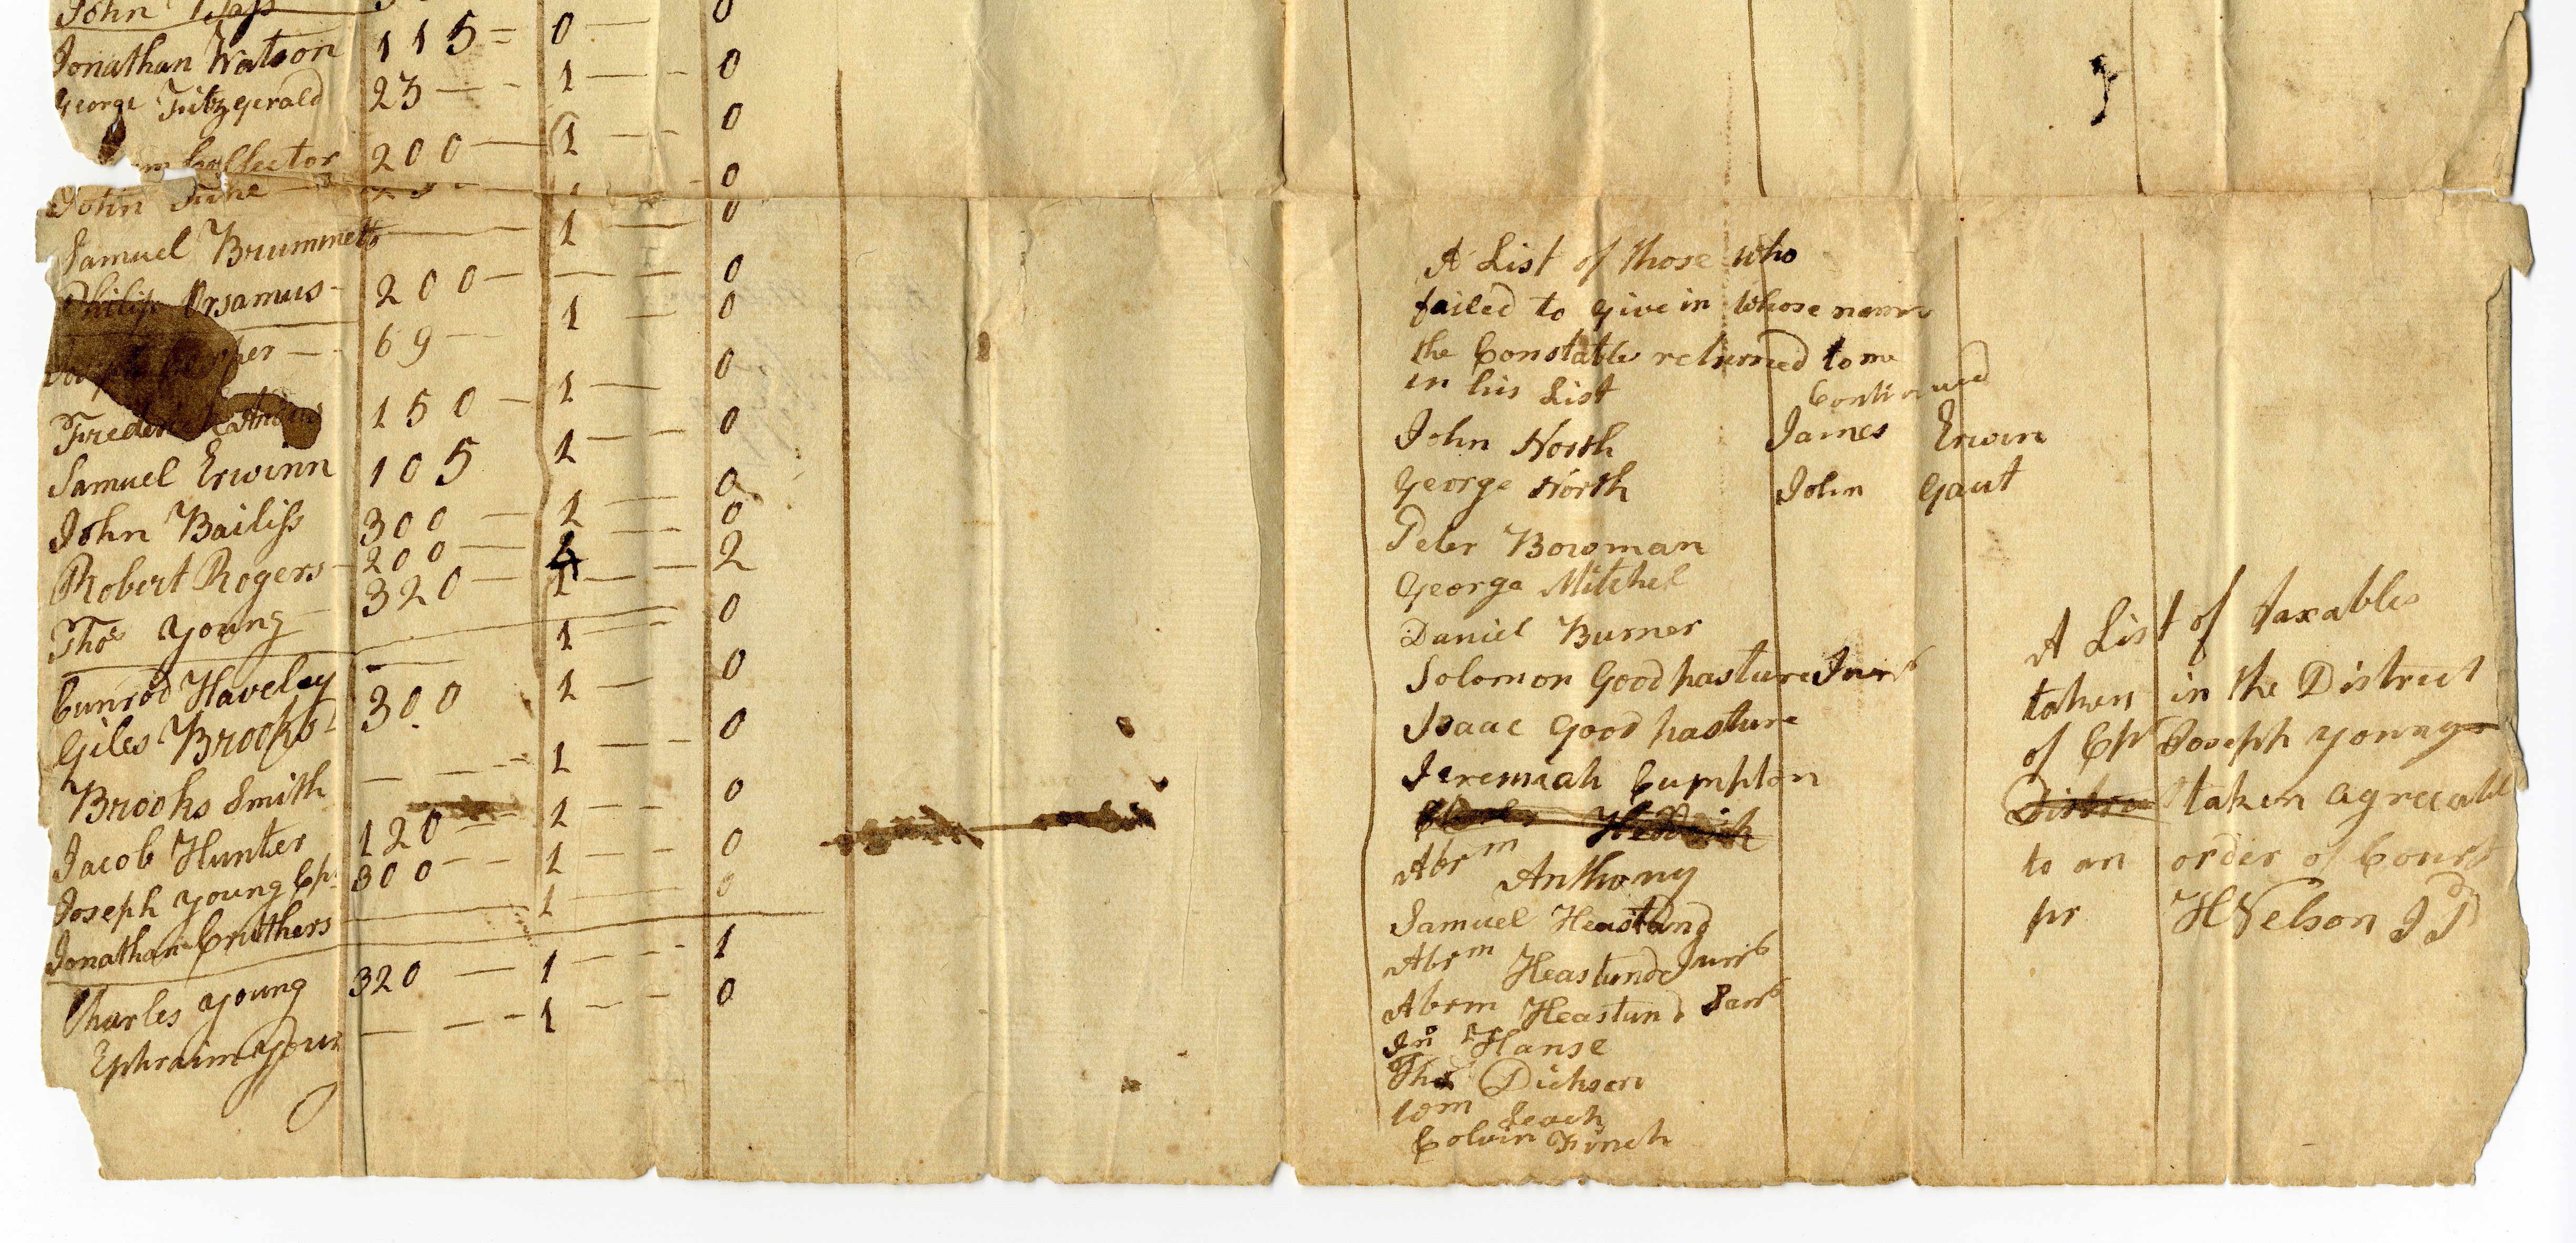 John
Jonathan Watson 115 = 0 — 0
George Fitzgerald 23 — - 1 — - 0
Collector 200 — 1 — — 0
John June — 0
Samuel Brummett — 1 — 0
Philip Orsamus - 200 — — — 0
69 — 1 0
Frederick 150 — 1 — — 0
Samuel Erwinn 105 1 — — 0
John Bailiss 300 — 1 — 0
Robert Rogers - 200 — — — 0
Thos Young 320 — 1 — — 2
Cunrod Haveley — 1 — — 0
Giles Brooks 300 1 — 0
Brooks Smith — — - 1 — - 0
Jacob Hunter 120 — 1 — - 0
Joseph Young Cpt 300 - - 1 - - - 0
Jonathan Cruthers — 1 0
Charles Young 320 — 1 - - - 1
Ephraim Youn — — - 1 - - - 0
A List of those who
failed to give in whose name
the Constable returned to me
in his List
John North
George North
Peter Bowman
George Mitchel
Daniel Burner
Solomon Goodpasture Junr
Isaac Goodpasture
Jeremiah Cumpton
Abrm Anthony
Samuel Heastand
Abrm Heastund Junr
Abrm Heastund Senr
Jno Hanse
Thos Dickson
Wm Leach
Colvin Finch
Continued
James Erwin
John Gaut
A List of taxables
taken in the District
of Cpt Joseph Youngs
taken agreeabl
to an order of Court
pr H Nelson J P